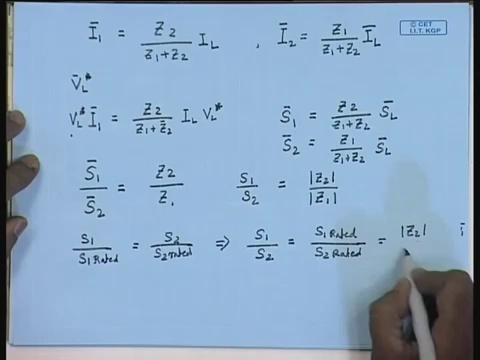 © CET
I.I.T. KGP
Ī₁ = Z₂/(Z₁+Z₂) I_L , Ī₂ = Z₁/(Z₁+Z₂) Ī_L
V̄_L*
V_L* Ī₁ = Z₂/(Z₁+Z₂) I_L V_L*
S̄₁ = Z₂/(Z₁+Z₂) S̄_L
S̄₂ = Z₁/(Z₁+Z₂) S̄_L
S̄₁/S̄₂ = Z₂/Z₁
S₁/S₂ = |Z₂|/|Z₁|
S₁/S₁ Rated = S₂/S₂ rated ⇒ S₁/S₂ = S₁ Rated/S₂ Rated = |Z₂|